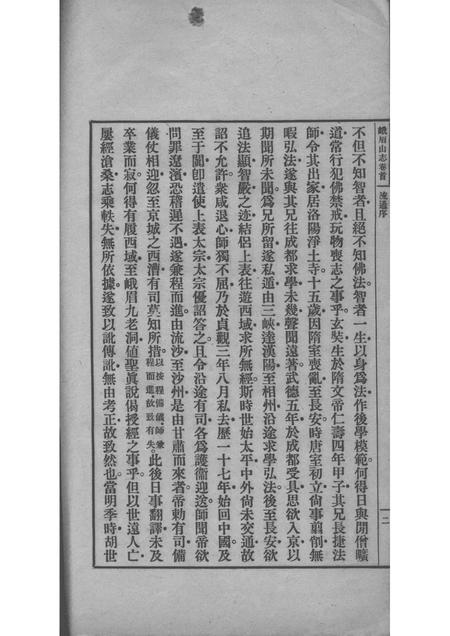 峨眉山志卷首　流通序
不但不知智者且絕不知佛法智者一生以身爲法作後學模範何得日與開僧曠
道常行犯佛禁戒玩物喪志之事乎玄奘生於隋文帝仁壽四年甲子其兄長捷法
師令其出家居洛陽淨土寺十五歲因隋室喪亂至長安時唐室初立尙事翦削無
暇弘法遂與其兄往成都求學未幾聲聞遠著武德五年於成都受具思欲入京以
期聞所未聞爲兄所留遂私遁由三峽達漢陽至相州沿途求學弘法後至長安欲
追法顯智嚴之迹結侶上表往遊西域求所無經斯時世始太平中外尙未交通故
詔不允許衆咸退心師獨不屈乃於貞觀三年八月私去歷一十七年始回中國及
至于闐卽遣使上表太宗太宗優詔答之且令沿途有司各爲護衞迎送師聞帝欲
問罪遼濱恐稽遲不遇遂兼程而進由流沙至沙州是由甘肅而來者帝勅有司備
儀仗相迎忽至京城之西漕有司莫知所措以按程備儀師兼程而進故致有失此後日事翻譯未及
卒業而寂何得有屐西域至峨眉九老洞値聖眞說偈授經之事乎但以世遠人亡
屢經滄桑志乘軼失無所依據遂致以訛傳訛無由考正故致然也當明季時胡世
二